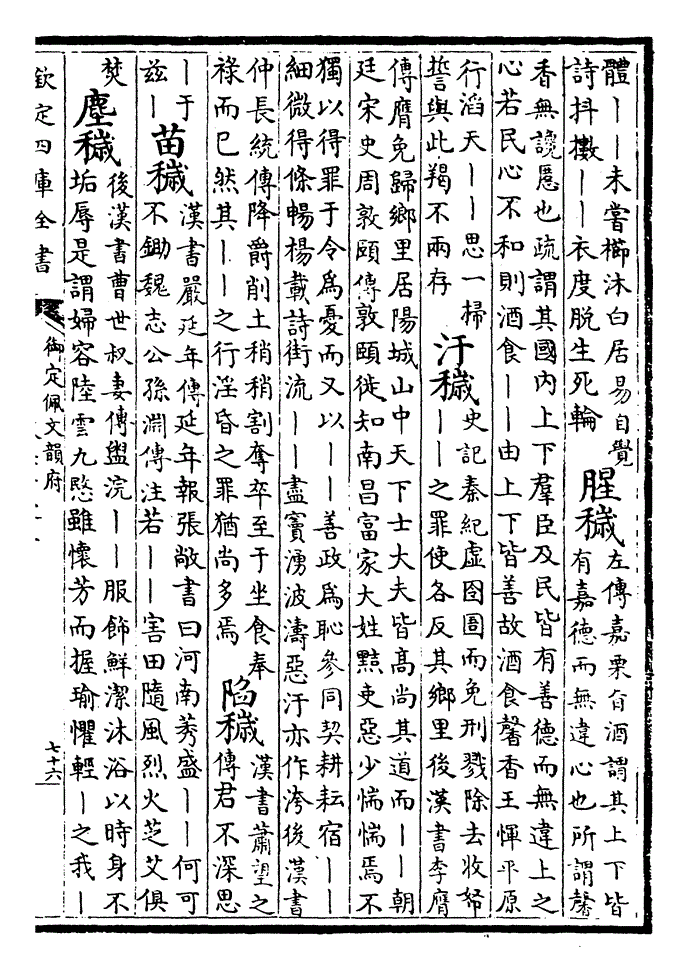 體——未嘗櫛沐白居易自覺
詩抖擻——衣度脱生死輪
腥穢
左傳嘉栗旨酒謂其上下皆
有嘉德而無違心也所謂馨
香無讒慝也疏謂其國内上下羣臣及民皆有善德而無違上之
心若民心不和則酒食——由上下皆善故酒食馨香王惲平原
行滔天——思一掃
誓與此羯不兩存
汙穢
史記秦紀虛囹圄而免刑戮除去收帑
——之罪使各反其鄉里後漢書李膺
傳膺免歸鄉里居陽城山中天下士大夫皆髙尚其道而——朝
廷宋史周敦頤傳敦頤徙知南昌富家大姓黠吏惡少惴惴焉不
獨以得罪于令為憂而又以——善政為恥參同契耕耘宿——
細微得條暢楊載詩街流——盡竇湧波濤惡汙亦作洿後漢書
仲長統傳降爵削土稍稍割奪卒至于坐食奉
祿而已然其——之行淫昏之罪猶尚多焉
陷穢
漢書蕭望之
傳君不深思
—于
兹—
苗穢
漢書嚴延年傳延年報張敞書曰河南莠盛——何可
不鋤魏志公孫淵傳注若——害田隨風烈火芝艾俱
焚
塵穢
後漢書曹世叔妻傳盥浣——服飾鮮潔沐浴以時身不
垢辱是謂婦容陸雲九愍雖懷芳而握瑜懼輕—之我—
欽定四庫全書
御定佩文韻府
七十六